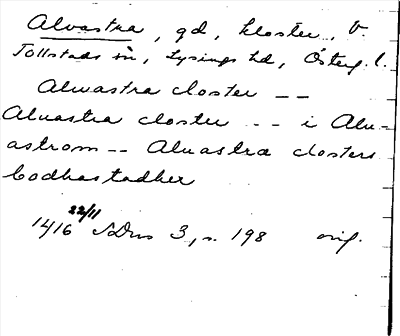 Alvastra, gd, kloster, V.
Tollstads sn, Lysings hd, Österg. l.
Alwastra closter --
Alwastra closter -- i Alw-
astrom -- Alwastra closters
bodhastadher
22/11
1416 SDns 3, s. 198 orig.